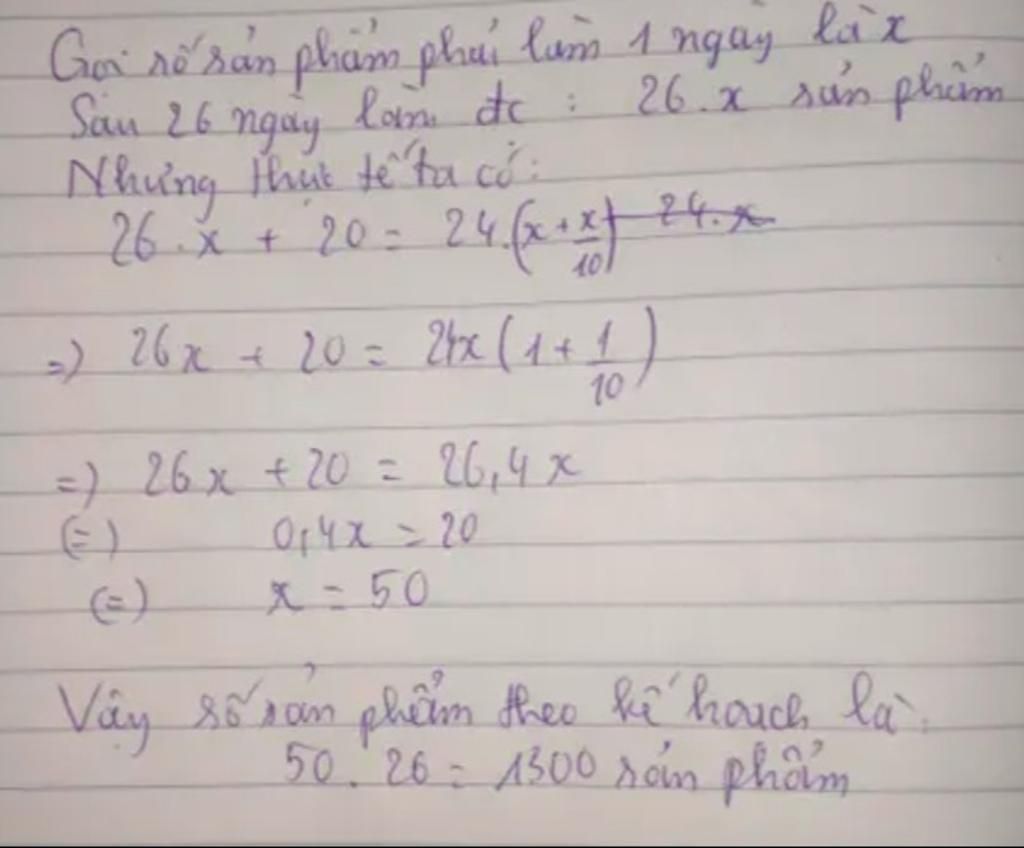 Gọi số sản phẩm phải làm 1 ngày là x
Sau 26 ngày làm đc : 26.x sản phẩm
Nhưng thực tế ta có:
26.x + 20 = 24.(x + x/10) 24.x
=) 26x + 20 = 24x(1 + 1/10)
=) 26x + 20 = 26,4x
(=) 0,4x = 20
(=) x = 50
Vậy số sản phẩm theo kế hoạch là:
50.26 = 1300 sản phẩm